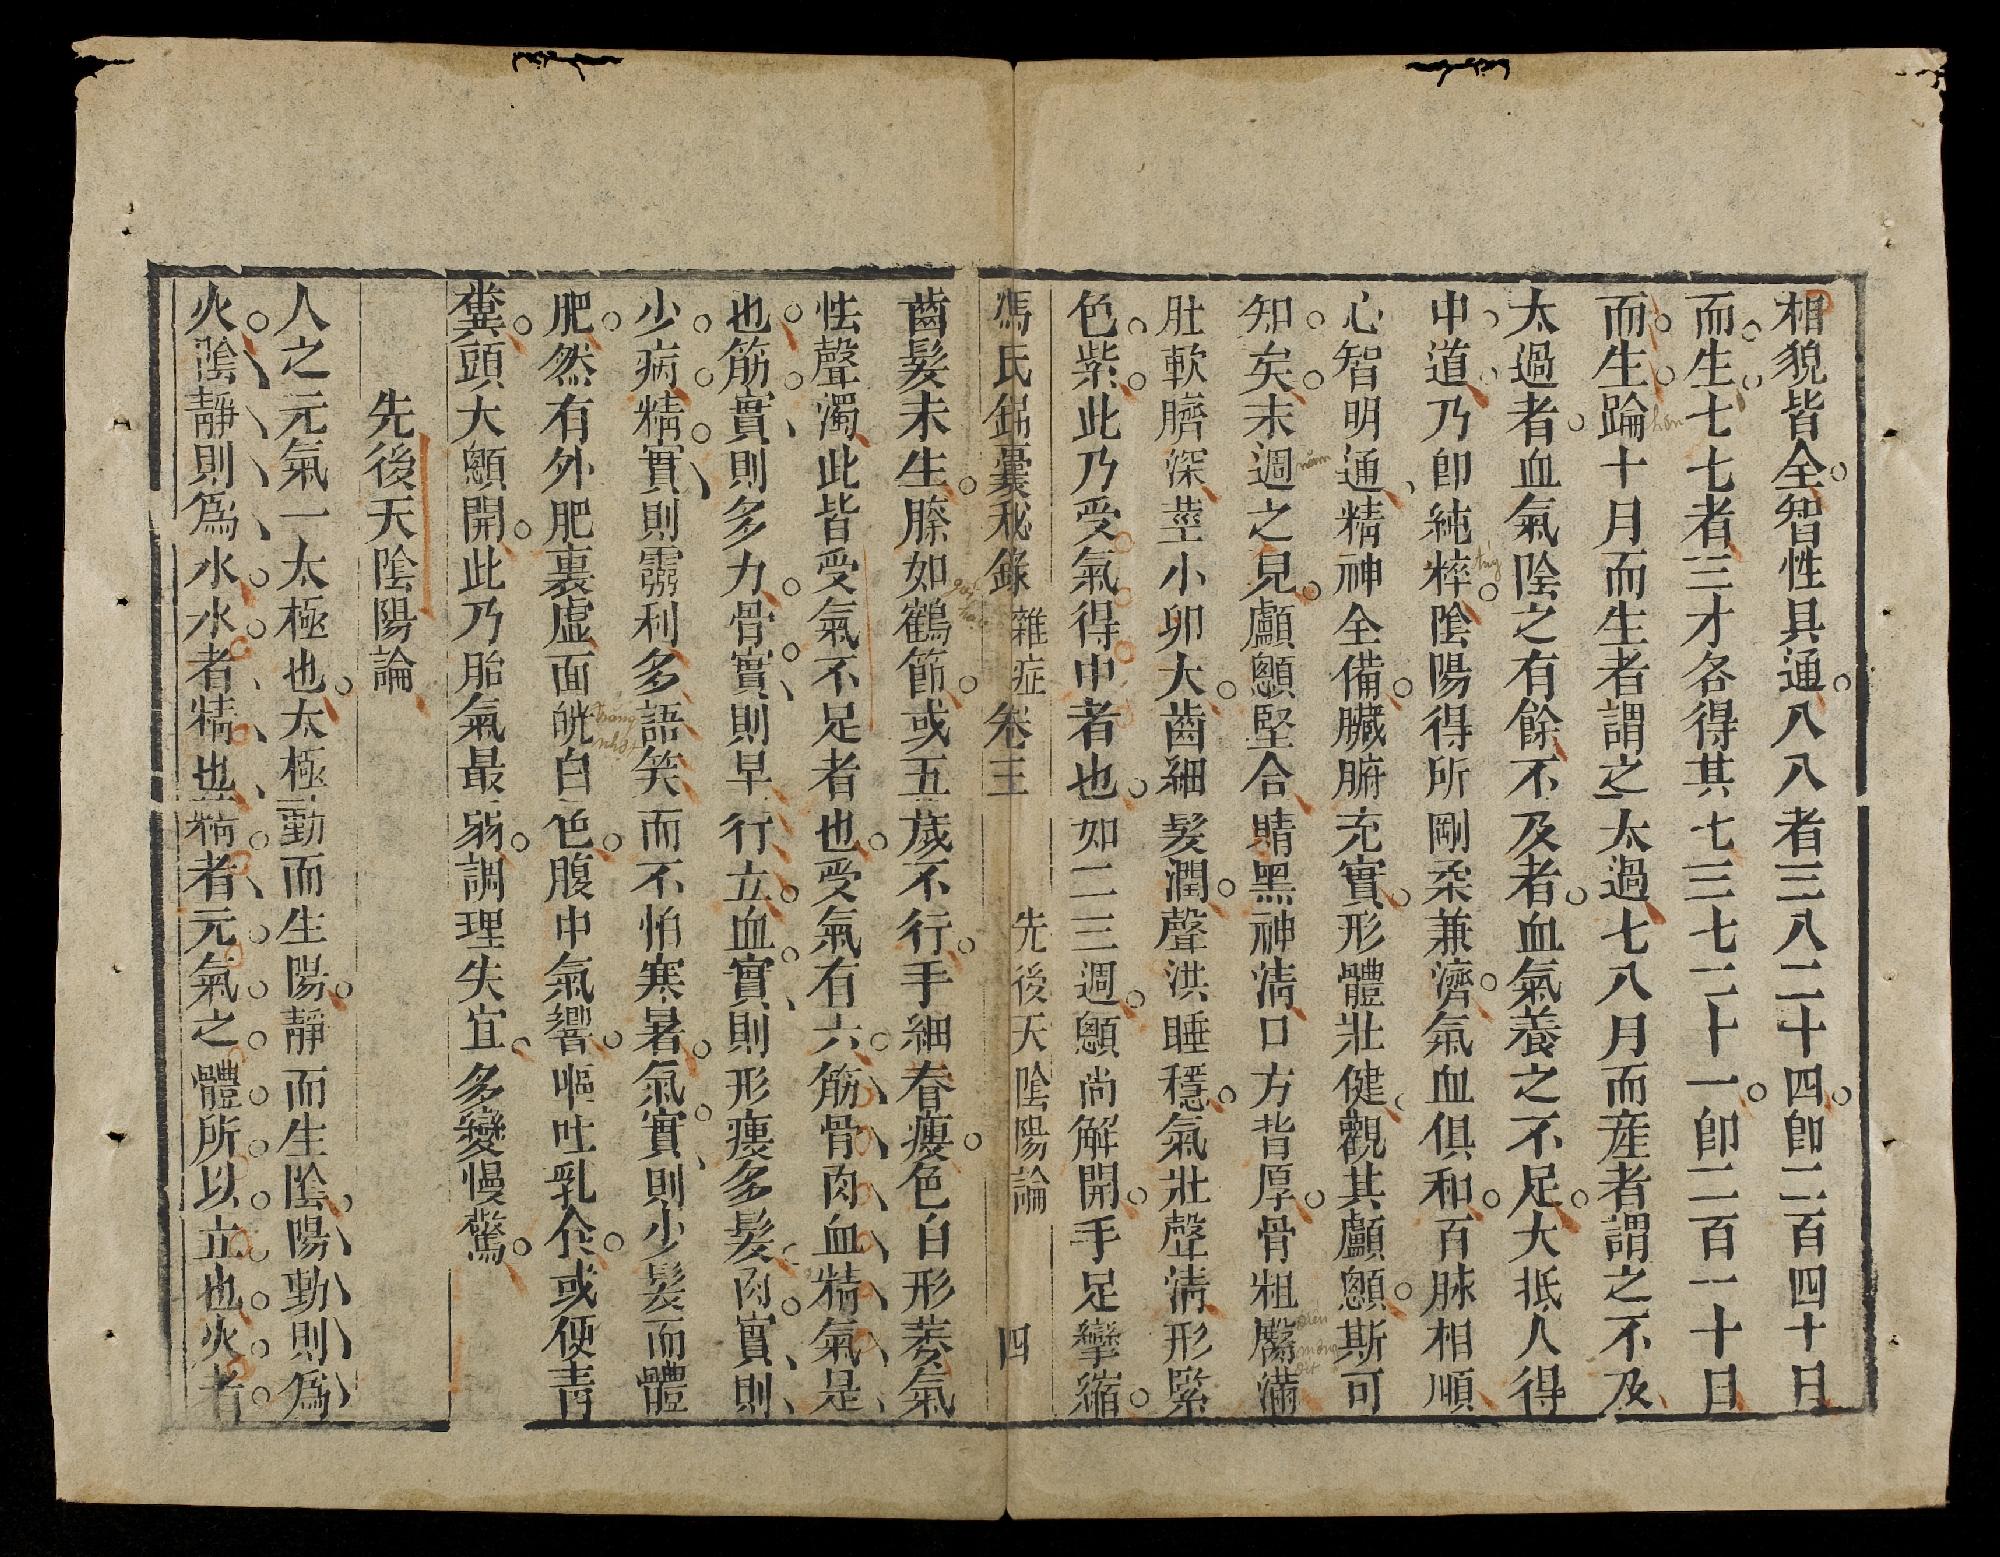 相貌皆全智性具通八八者三八二十四卽二百四十日
而生七七者三才各得其七三七二十一卽二百一十日
而生踰十月而生者謂之太過七八月而産者謂之不及
太過者血氣陰之有餘不及者血氣養之不足大抵人得
中道乃卽純粹陰陽得所剛柔兼濟氣血俱和百脉相順
心智明通精神全備臟腑充實形體壯健觀其顱顖斯可
知矣未週之見顱顖堅合睛黑神清口方背厚骨粗臋滿
肚軟臍深莖小卵大齒細髮潤聲洪睡穩氣壯聲清形緊
色紫此乃受氣得中者也如二三週顖尚解開手足攣縮
馮氏錦囊秘錄 雜症 卷三 先後天陰陽論 四
齒髮未生膝如鶴節或五歲不行手細脊瘦色白形萎氣
怯聲濁此皆受氣不足者也受氣有六筋骨肉血精氣是
也筋實則多力骨實則早行立血實則形瘦多髮肉實則
少病精實則靈利多語笑而不怕寒暑氣實則少髮而體
肥然有外肥裏虛面㿠白色腹中氣響嘔吐乳食或便青
糞頭大顖開此乃胎氣最弱調理失宜多變慢驚
先後天陰陽論
人之元氣一太極也太極動而生陽靜而生陰陽動則爲
火陰靜則爲水水者精也精者元氣之體所以立也火者
hơn
túy
năm
gối
hạc
trắng
nhợt
mông
đít